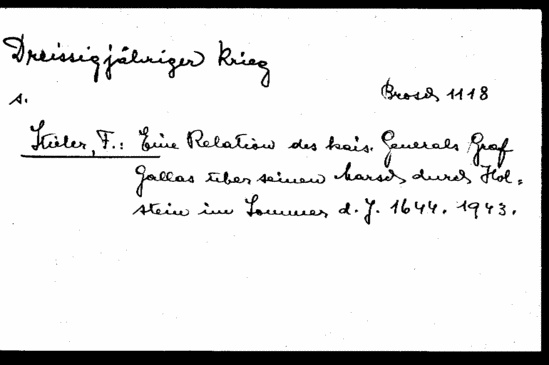 Dreissigjähriger Krieg
s. Brosch 1118
Stieler, F.: Eine Relation des kais. Generals Graf
Gallas über seinen Marsch durch Hol-
stein im Sommer d. J. 1644. 1943.